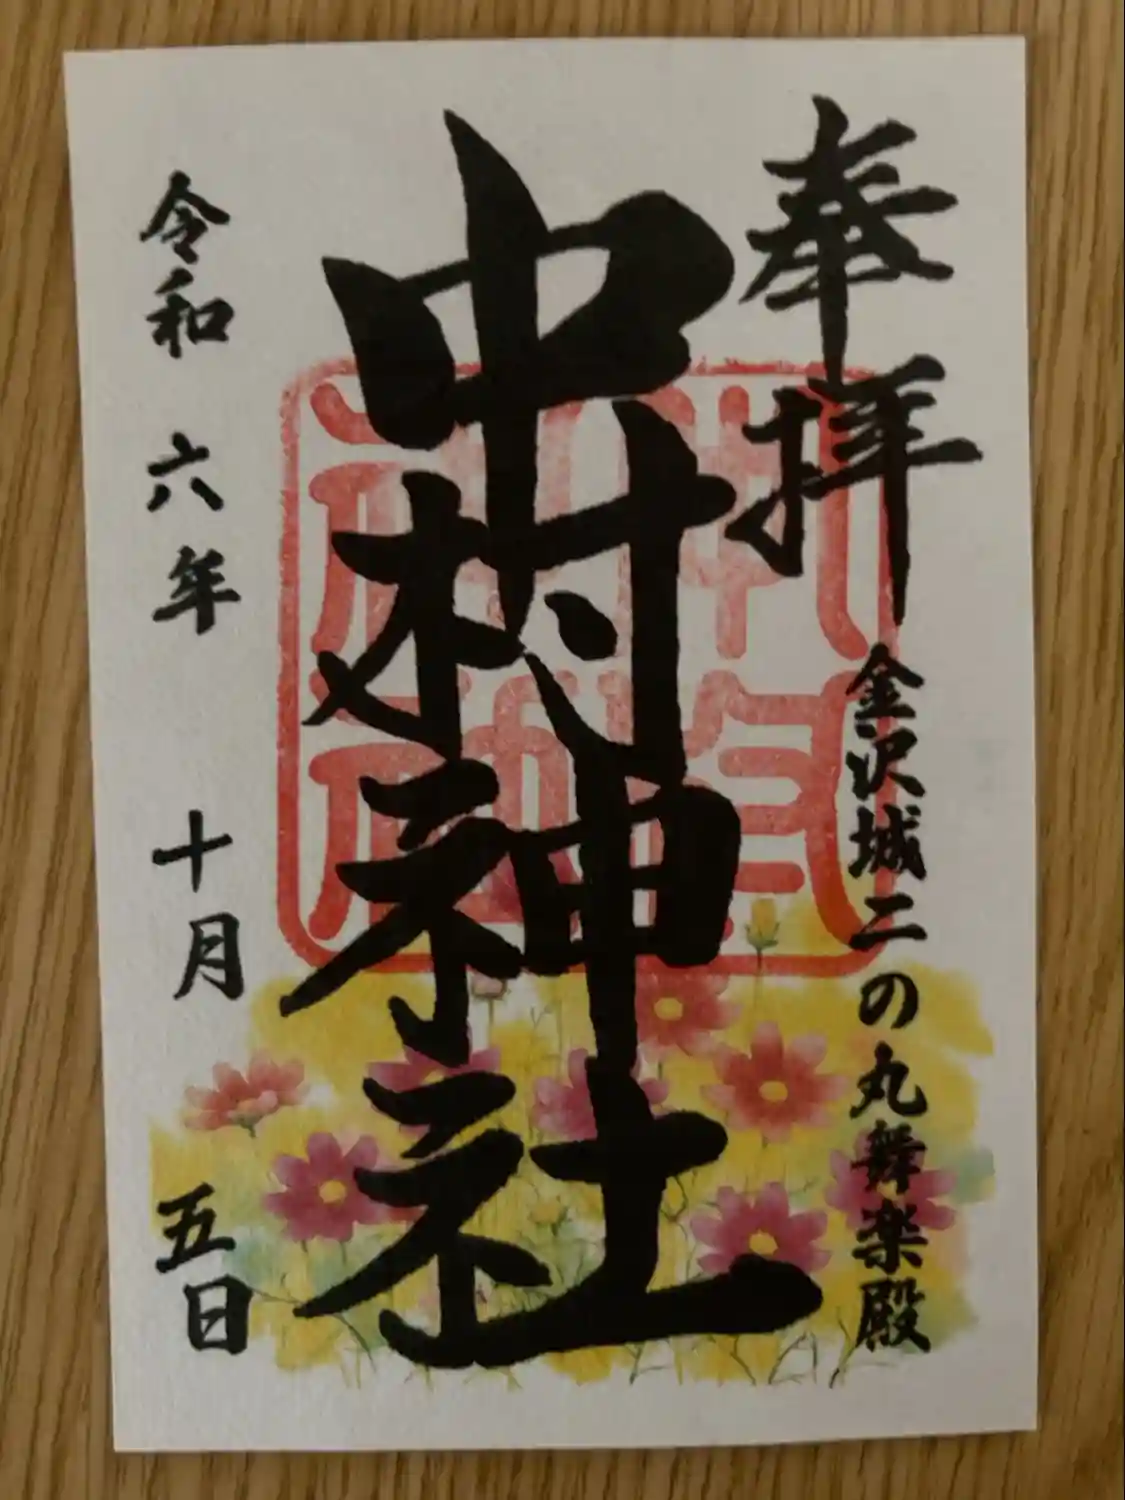 奉拝
金沢城二の丸舞楽殿
中村神社
令和六年十月五日